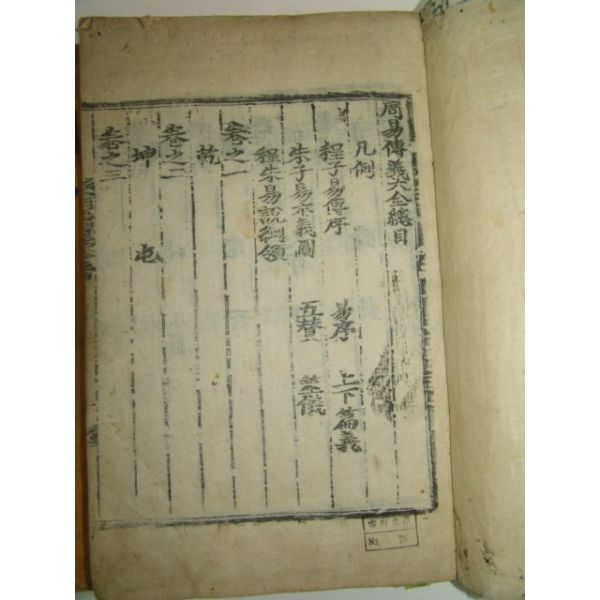 周易傳義大全總目
凡例
程子易傳序 易序 上下篇義
朱子易本義圖 五贊 筮儀
程朱易說綱領
卷之一
乾
卷之二
坤 屯
卷之三
No.